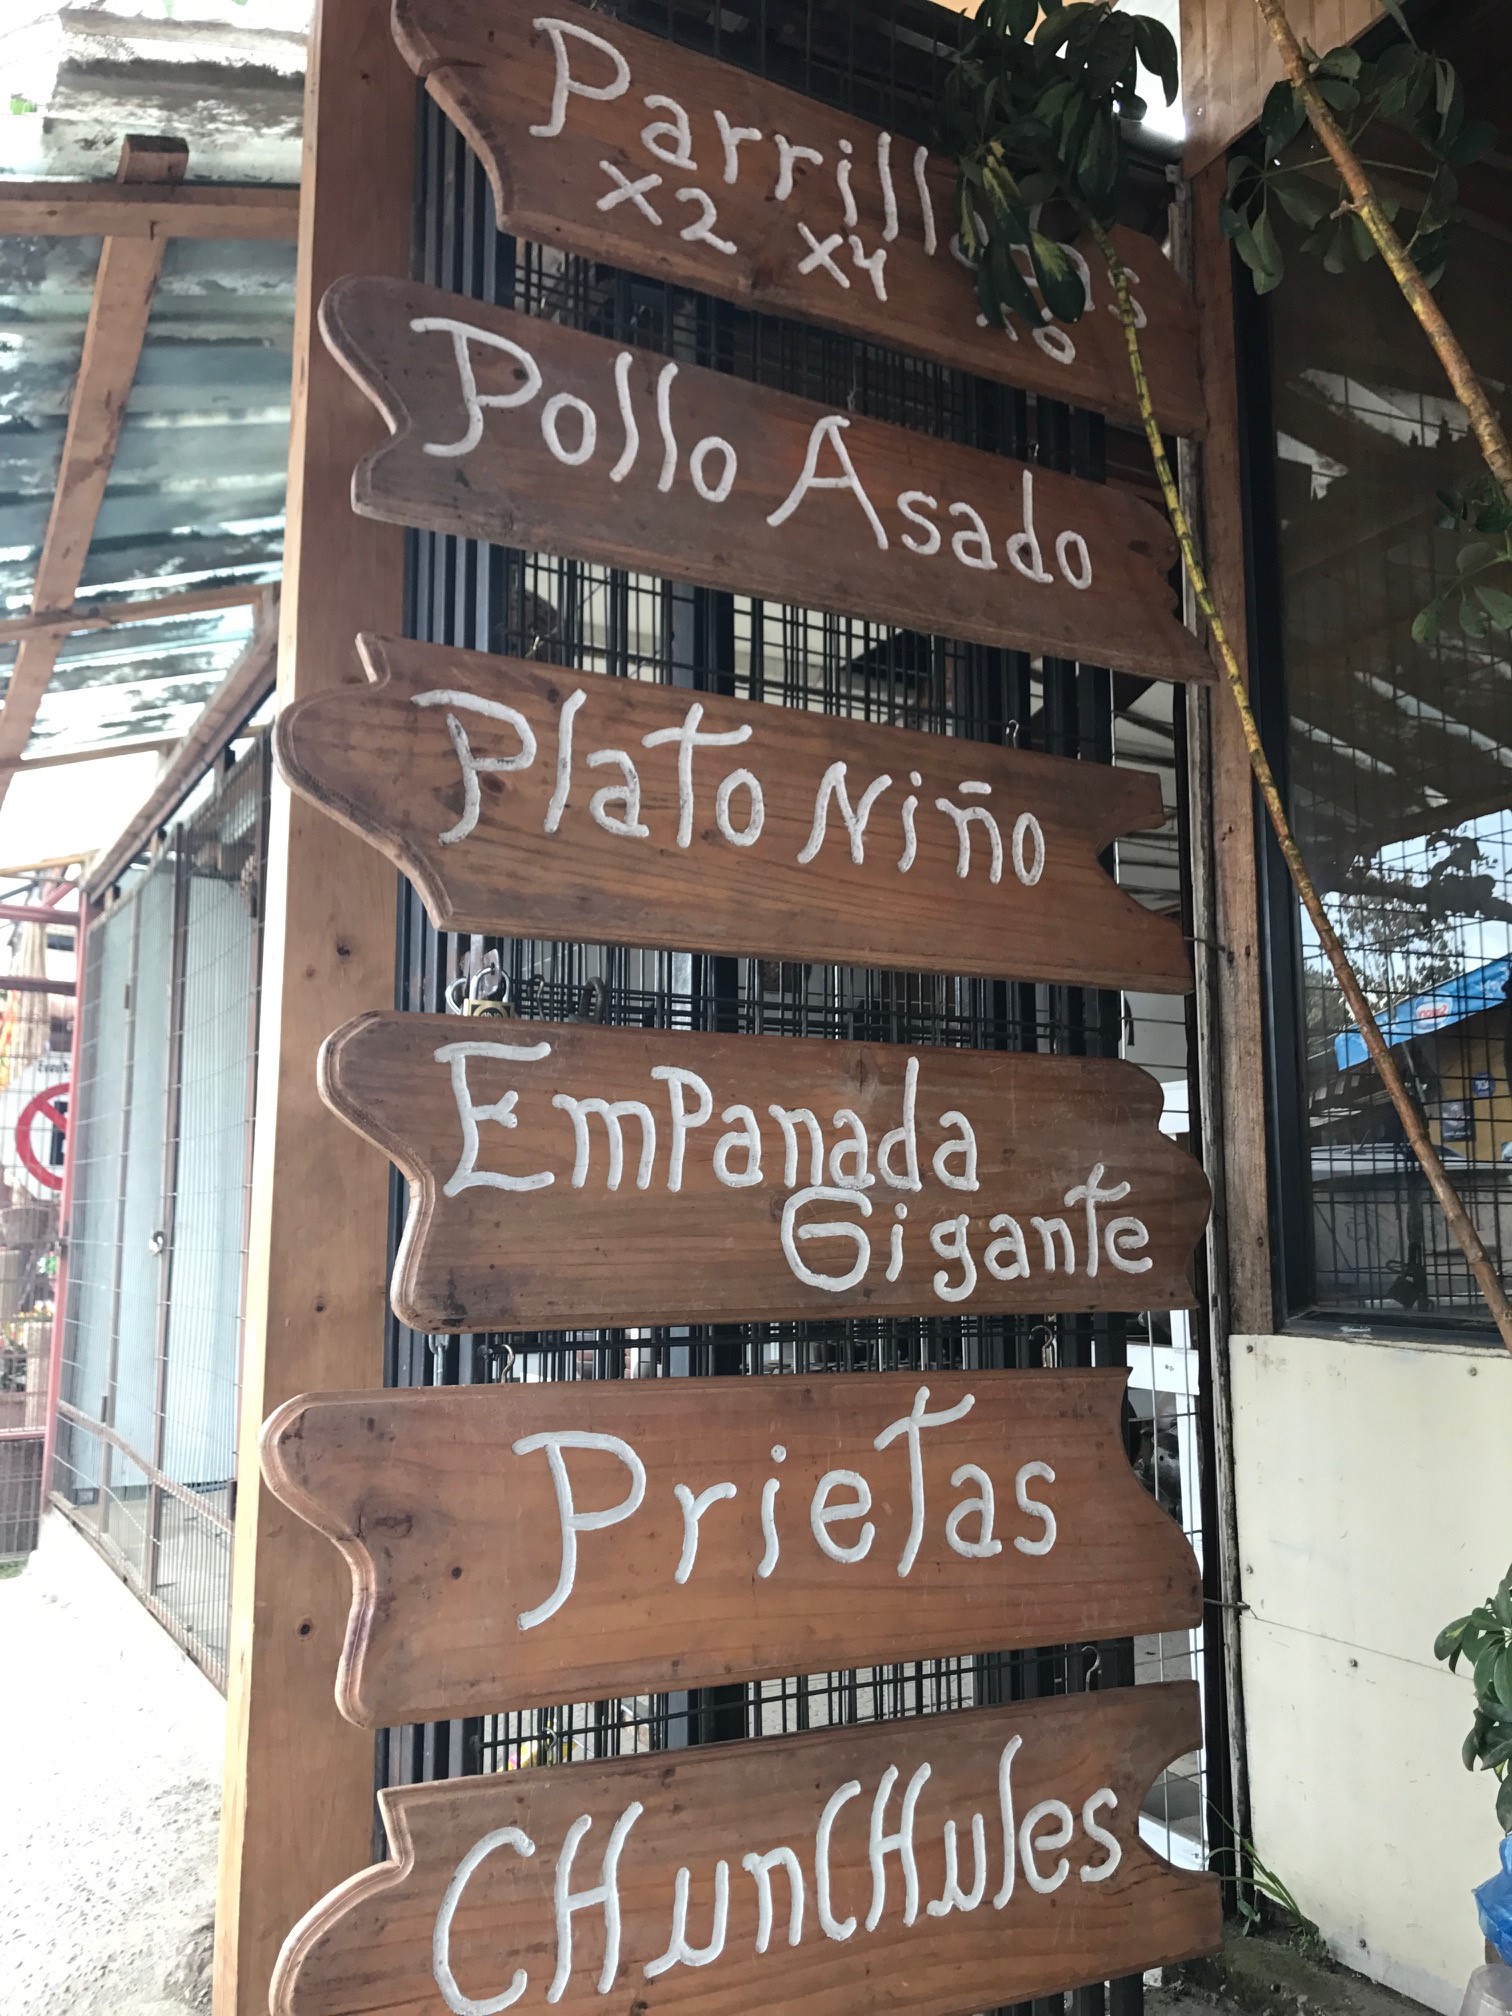 x2 x4
Pollo Asado
Plato Niño
EmPanada
Gigante
Prietas
CHunCHules